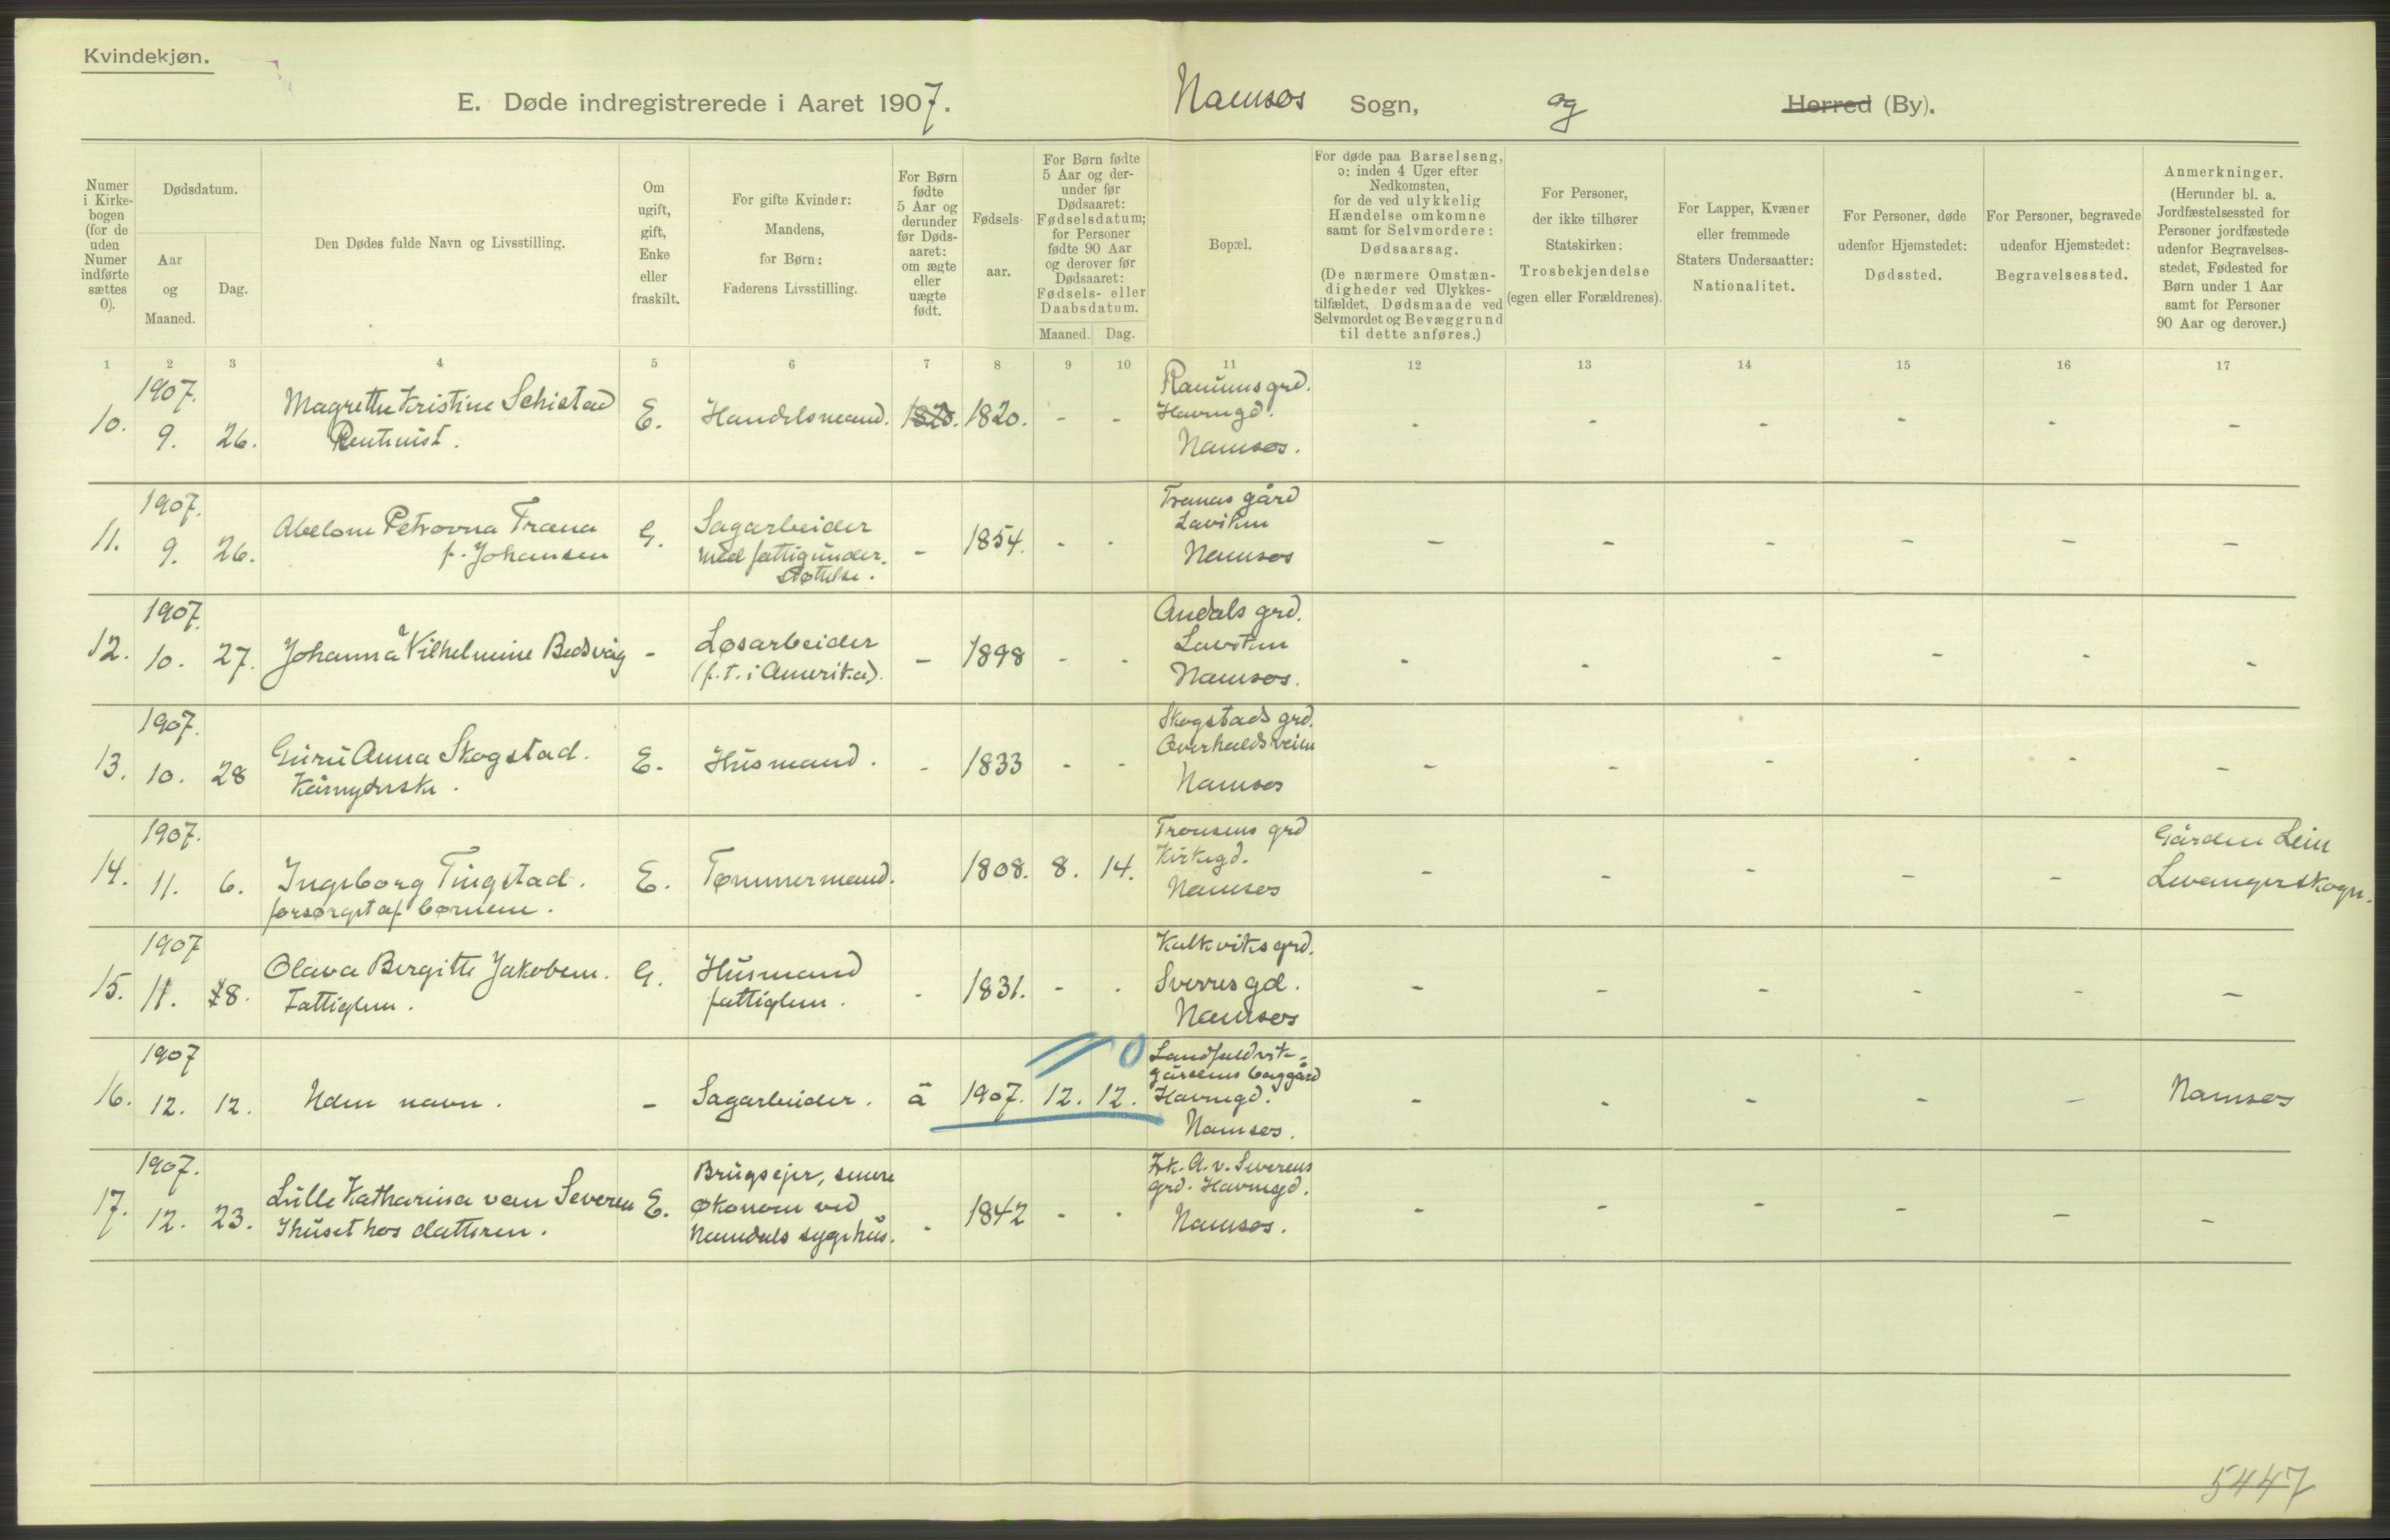 Kvindekjøn.
E. Døde indregistrerede i Aaret 1907.
Namsos Sogn, og Herred (By).
Numer i Kirke- bogen (for de uden Numer indførte sættes 0).
Dødsdatum.
Aar og Maaned.
Dag.
Den Dødes fulde Navn og Livsstilling.
Om ugift, gift, Enke eller fraskilt.
For gifte Kvinder: Mandens, for Børn: Faderens Livsstilling.
For Børn fødte 5 Aar og derunder før Døds- aaret: om ægte eller uægte født.
Fødsels- aar.
For Børn fødte 5 Aar og der- under før Dødsaaret: Fødselsdatum; for Personer fødte 90 Aar og derover før Dødsaaret: Fødsels- eller Daabsdatum.
Maaned. Dag.
Bopæl.
For døde paa Barselseng, ɔ: inden 4 Uger efter Nedkomsten, for de ved ulykkelig Hændelse omkomne samt for Selvmordere: Dødsaarsag.
(De nærmere Omstæn- digheder ved Ulykkes- tilfældet, Dødsmaade ved Selvmordet og Bevæggrund til dette anføres.)
For Personer, der ikke tilhører Statskirken: Trosbekjendelse (egen eller Forældrenes).
For Lapper, Kvæner eller fremmede Staters Undersaatter: Nationalitet.
For Personer, døde udenfor Hjemstedet: Dødssted.
For Personer, begravede udenfor Hjemstedet: Begravelsessted.
Anmerkninger.
(Herunder bl. a. Jordfæstelsessted for Personer jordfæstede udenfor Begravelses- stedet, Fødested for Børn under 1 Aar samt for Personer 90 Aar og derover.)
1 2 3 4 5 6 7 8 9 10 11 12 13 14 15 16 17
10. 1907. 9. 26. Magrethe Kristine Schistad
Rentenist.
E. Handelsmand. 1820. 1820. - -
Havnegd.
Namsos. - - - - - -
11. 1907. 9. 26. Abelone Petrovna Trana
f. Johansen
G. Sagarbeider
med fattigunder-
støttelse.
- 1854. - -
Tranas gård
Namsos - - - - - -
12. 1907. 10. 27. Johanna Vilhelmine Bedsvåg
- Løsarbeider
(f. t. i Amerika).
- 1898 - -
Andals grd.
Namsos. - - - - - -
13. 1907. 10. 28 Guru Anna Skogstad.
Kårnyderske.
E. Husmand. - 1833 - -
Skogstads grd.
Overhaldsveien
Namsos - - - - - -
14. 1907. 11. 6. Ingeborg Tingstad.
forsørget af børnene.
E. Tømmermand. 1808. 8. 14.
Tronsens grd
Kirkegd.
Namsos - - - - -
Gården Lein
Levanger skogn.
15. 1907 11. 8. Olava Bergitte Jakobsen.
Fattiglem.
G. Husmand
fattiglem.
- 1831. - -
Kalkviks grd.
Sverresgd.
Namsos - - - - - -
16. 1907 12. 12. Uden navn.
- Sagarbeider. ä 1907. 12. 12. 0
gårdens baggård
Havnegd.
Namsos. - - - - -
Namsos
17. 1907. 12. 23. Lulle Katharina van Severen
I huset hos datteren.
E. Brugsejer, senere
økonom ved
Namdals sygehus.
- 1842 - -
Frk. A. v. Severens
grd. Havnegd.
Namsos. - - - - - -
5447